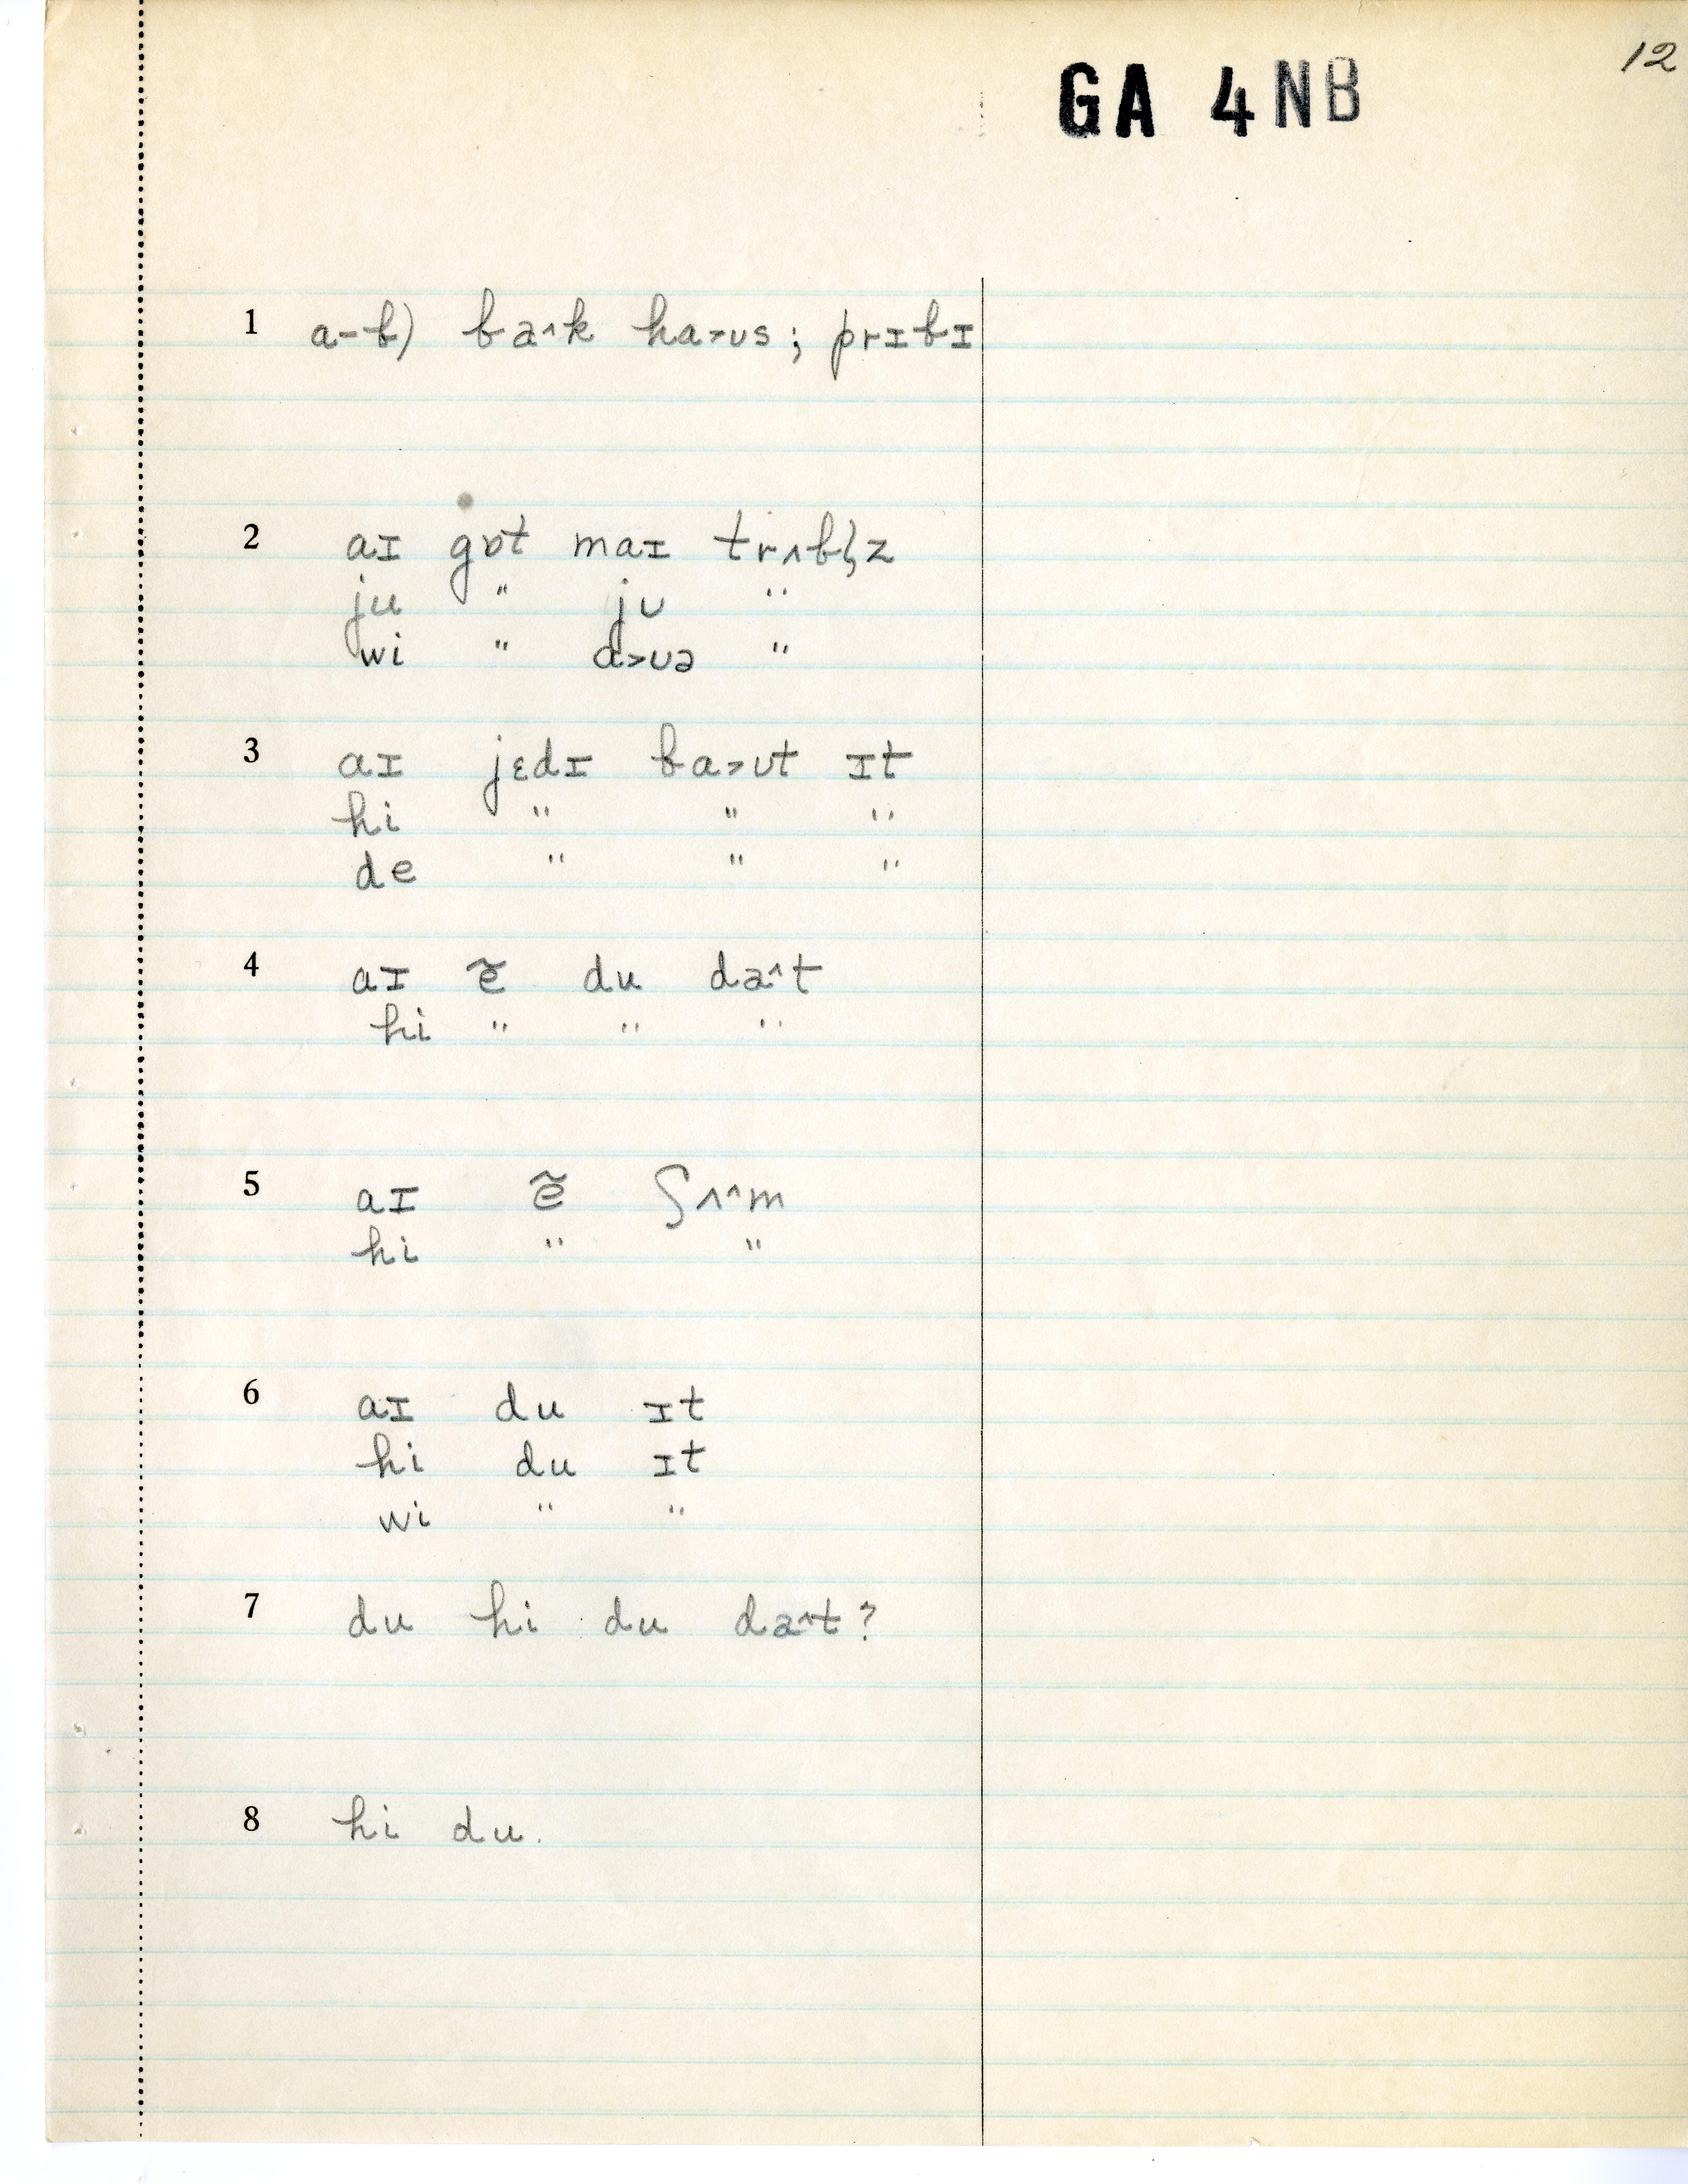 12
GA 4NB
1 a-b) ba^k ha>ʊs; prɪbɪ
2 aɪ gɒt maɪ trʌbl̩z
ju " jʊ "
wi " ɑ>ʊə "
3 aɪ jɛdɪ ba>ʊt ɪt
hi " " "
de " " "
4 aɪ ẽ du da^t
hi " " "
5 aɪ ẽ ʃʌ^m
hi " "
6 aɪ du ɪt
hi du ɪt
wi " "
7 du hi du da^t?
8 hi du.